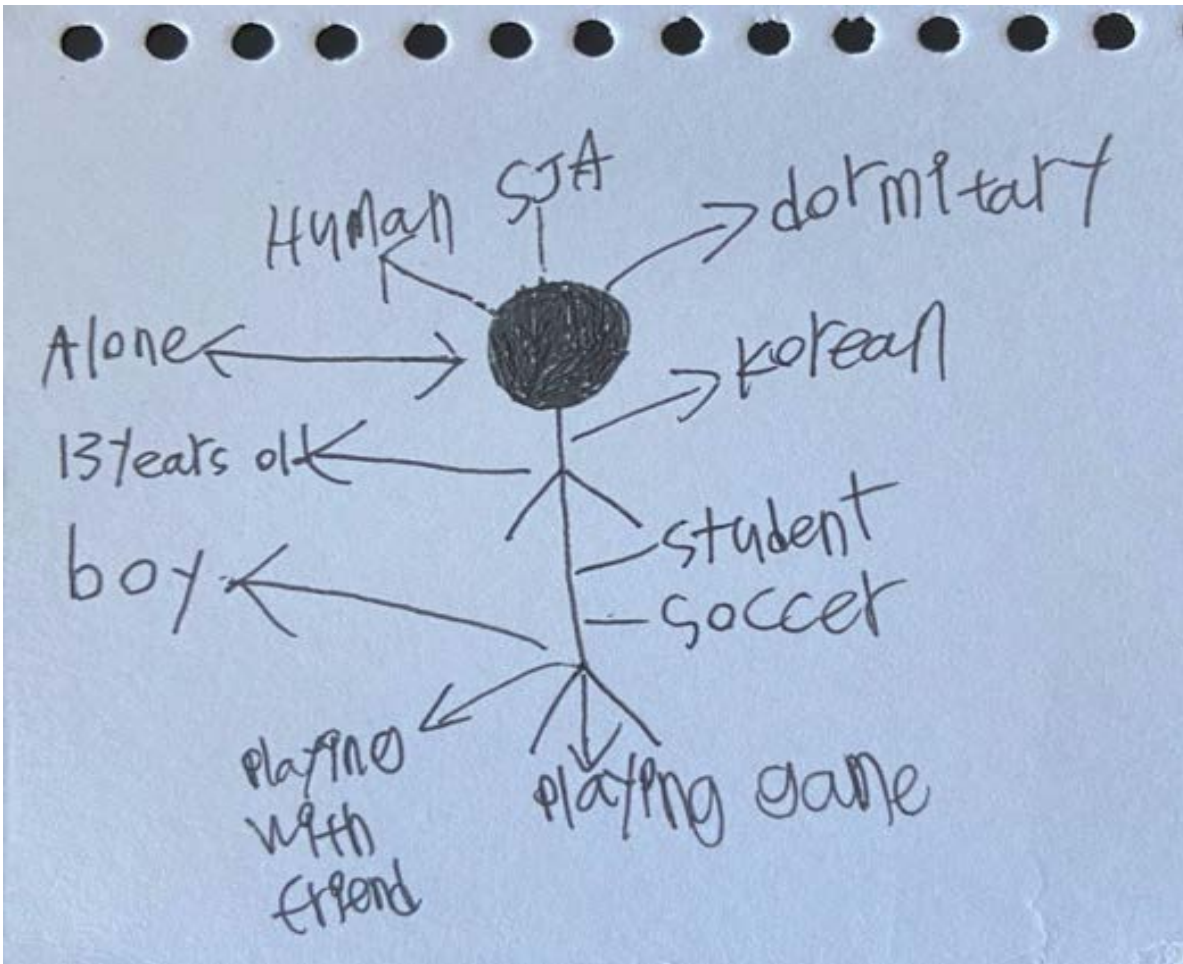 SJA
Human
dormitary
Alone
Korean
13 years old
student
boy
soccer
playing
with
friend
playing game